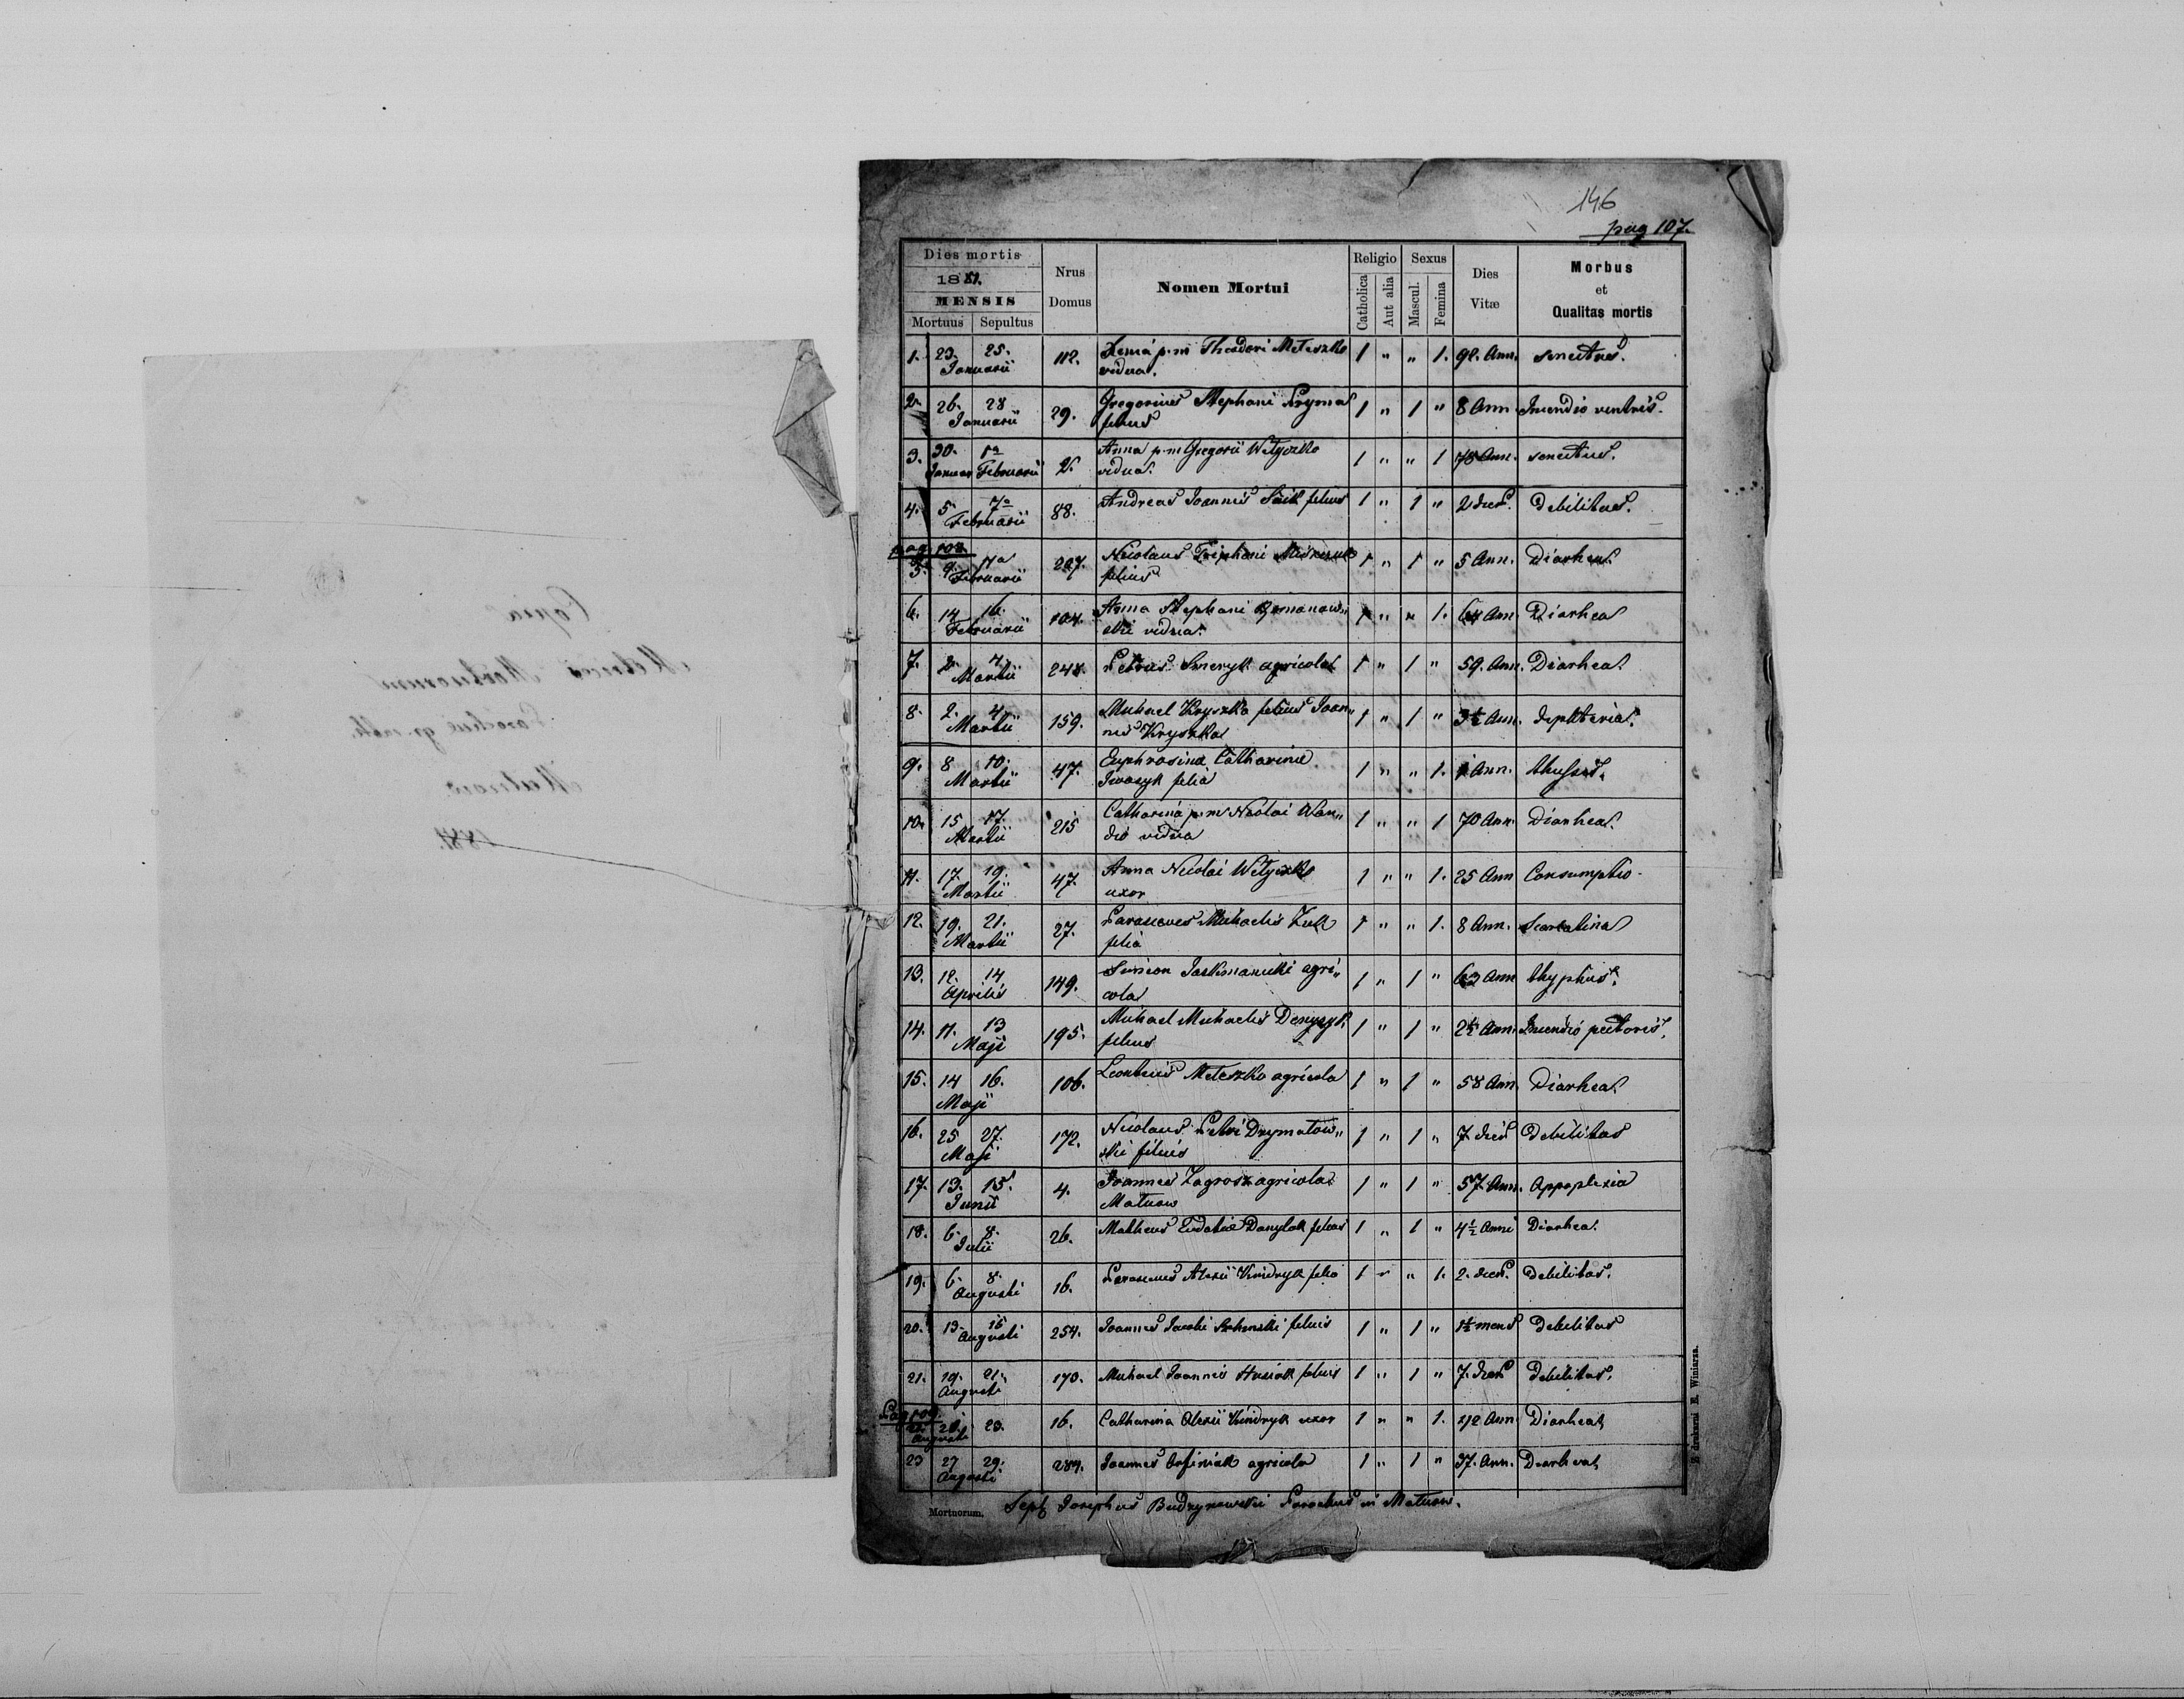 146
pag 107.
Dies mortis
1881.
MENSIS
Mortuus Sepultus
Nrus
Domus
Nomen Mortui
Religio
Catholica
Aut alia
Sexus
Mascul.
Femina
Dies
Vitæ
Morbus
et
Qualitas mortis
1. 23. 25. 112. p.m Theodori Meteszko 1 " " 1. 92. Ann. senectus.
Januarii vidua.
2. 26. 28 29. Gregorius Stephani Pryma 1 " 1 " 8 Ann. Incendio ventris.
Januarii filius
3. 30. 1a 2. Anna p.m Gregorii Wetyczko 1 " " 1 78 Ann. senectus.
Januar Februarii vidua.
4. 5 7a 88. Andreas Joannis filius 1 " 1 " 2 dies. Debilitas.
Februarii
pag 108.
5. 9. 227. Nicolaus filius 1 " 1 " 5 Ann. Diarhea.
Februarii
6. 14 16. 104. Anna Stephani Romanow„ 1 " " 1. 64 Ann. Diarhea
Februarii skii vidua.
7. 2. 4. 248. Petrus Smeryk agricola 1 " 1 " 59. Ann. Diarhea.
Martii
8. 2. 4. 159. Michael Kryszka filius Joan„ 1 " 1 " 3½ Ann. diphteria.
Martii nis Kryszka
9. 8 10. 47. Euphrosina Catharinæ 1 " " 1. 1 Ann.
Martii Iwasyk filia
10. 15 17. 215 Catharina p.m Nicolai Wan„ 1 " " 1 70 Ann. Diarhea.
Martii dio vidua
11. 17. 19. 47. Anna Nicolai Wetyczko 1 " " 1. 25 Ann Consumptio.
Martii uxor
12. 19. 21. 27. Parasceves Michaelis Zuk 1 " " 1. 8 Ann. Scarlatina
Martii filia
13. 12. 14 149. Simeon Jaskmanicki agri„ 1 " 1 " 63 Ann thyphus.
Aprilis cola
14. 11. 13 195. Michael Michaelis Denysyk 1 " 1 " 2½ Ann. Incendio pectoris.
Maji filius
15. 14 16. 106. Leontius Meteszko agricola 1 " 1 " 58 Ann. Diarhea.
Maji
16. 25 27. 172. Nicolaus Petri Drymalow„ 1 " 1 " 7 dies Debilitas
Maji skii filius
17. 13. 15. 4. Joannes Zagrosz agricola 1 " 1 " 57. Ann. Appoplexia
Junii Matnow
18. 6. 8. 26. Matheus Eudokiæ Danylak filius 1 " 1 " 4½ Anni Diarhea.
Julii
19. 6. 8. 16. Parasceves Alexii Kindryk filia 1 " " 1. 2. dies. Debilitas.
Augusti
20. 13. 15 254. Joannes Jacobi filius 1 " 1 " 1½ mens Debilitas
Augusti
21. 19. 21. 170. Michael Joannis Husiak filius 1 " 1 " 7. dies Debilitas.
Augusti
Pag 109.
23. 16. Catharina Alexii Kindryk uxor 1 " " 1. 42 Ann. Diarhea
Augusti
23 27 29. 284. Joannes agricola 1 " 1 " 37. Ann. Diarhea
Augusti
Mortuorum. Josephus Budzynowski Parochus in Matnow.
Z drukarni E. Winiarza.
Copia
Metrices Mortuorum
Parochiæ gr. cath.
Matnow
1881.